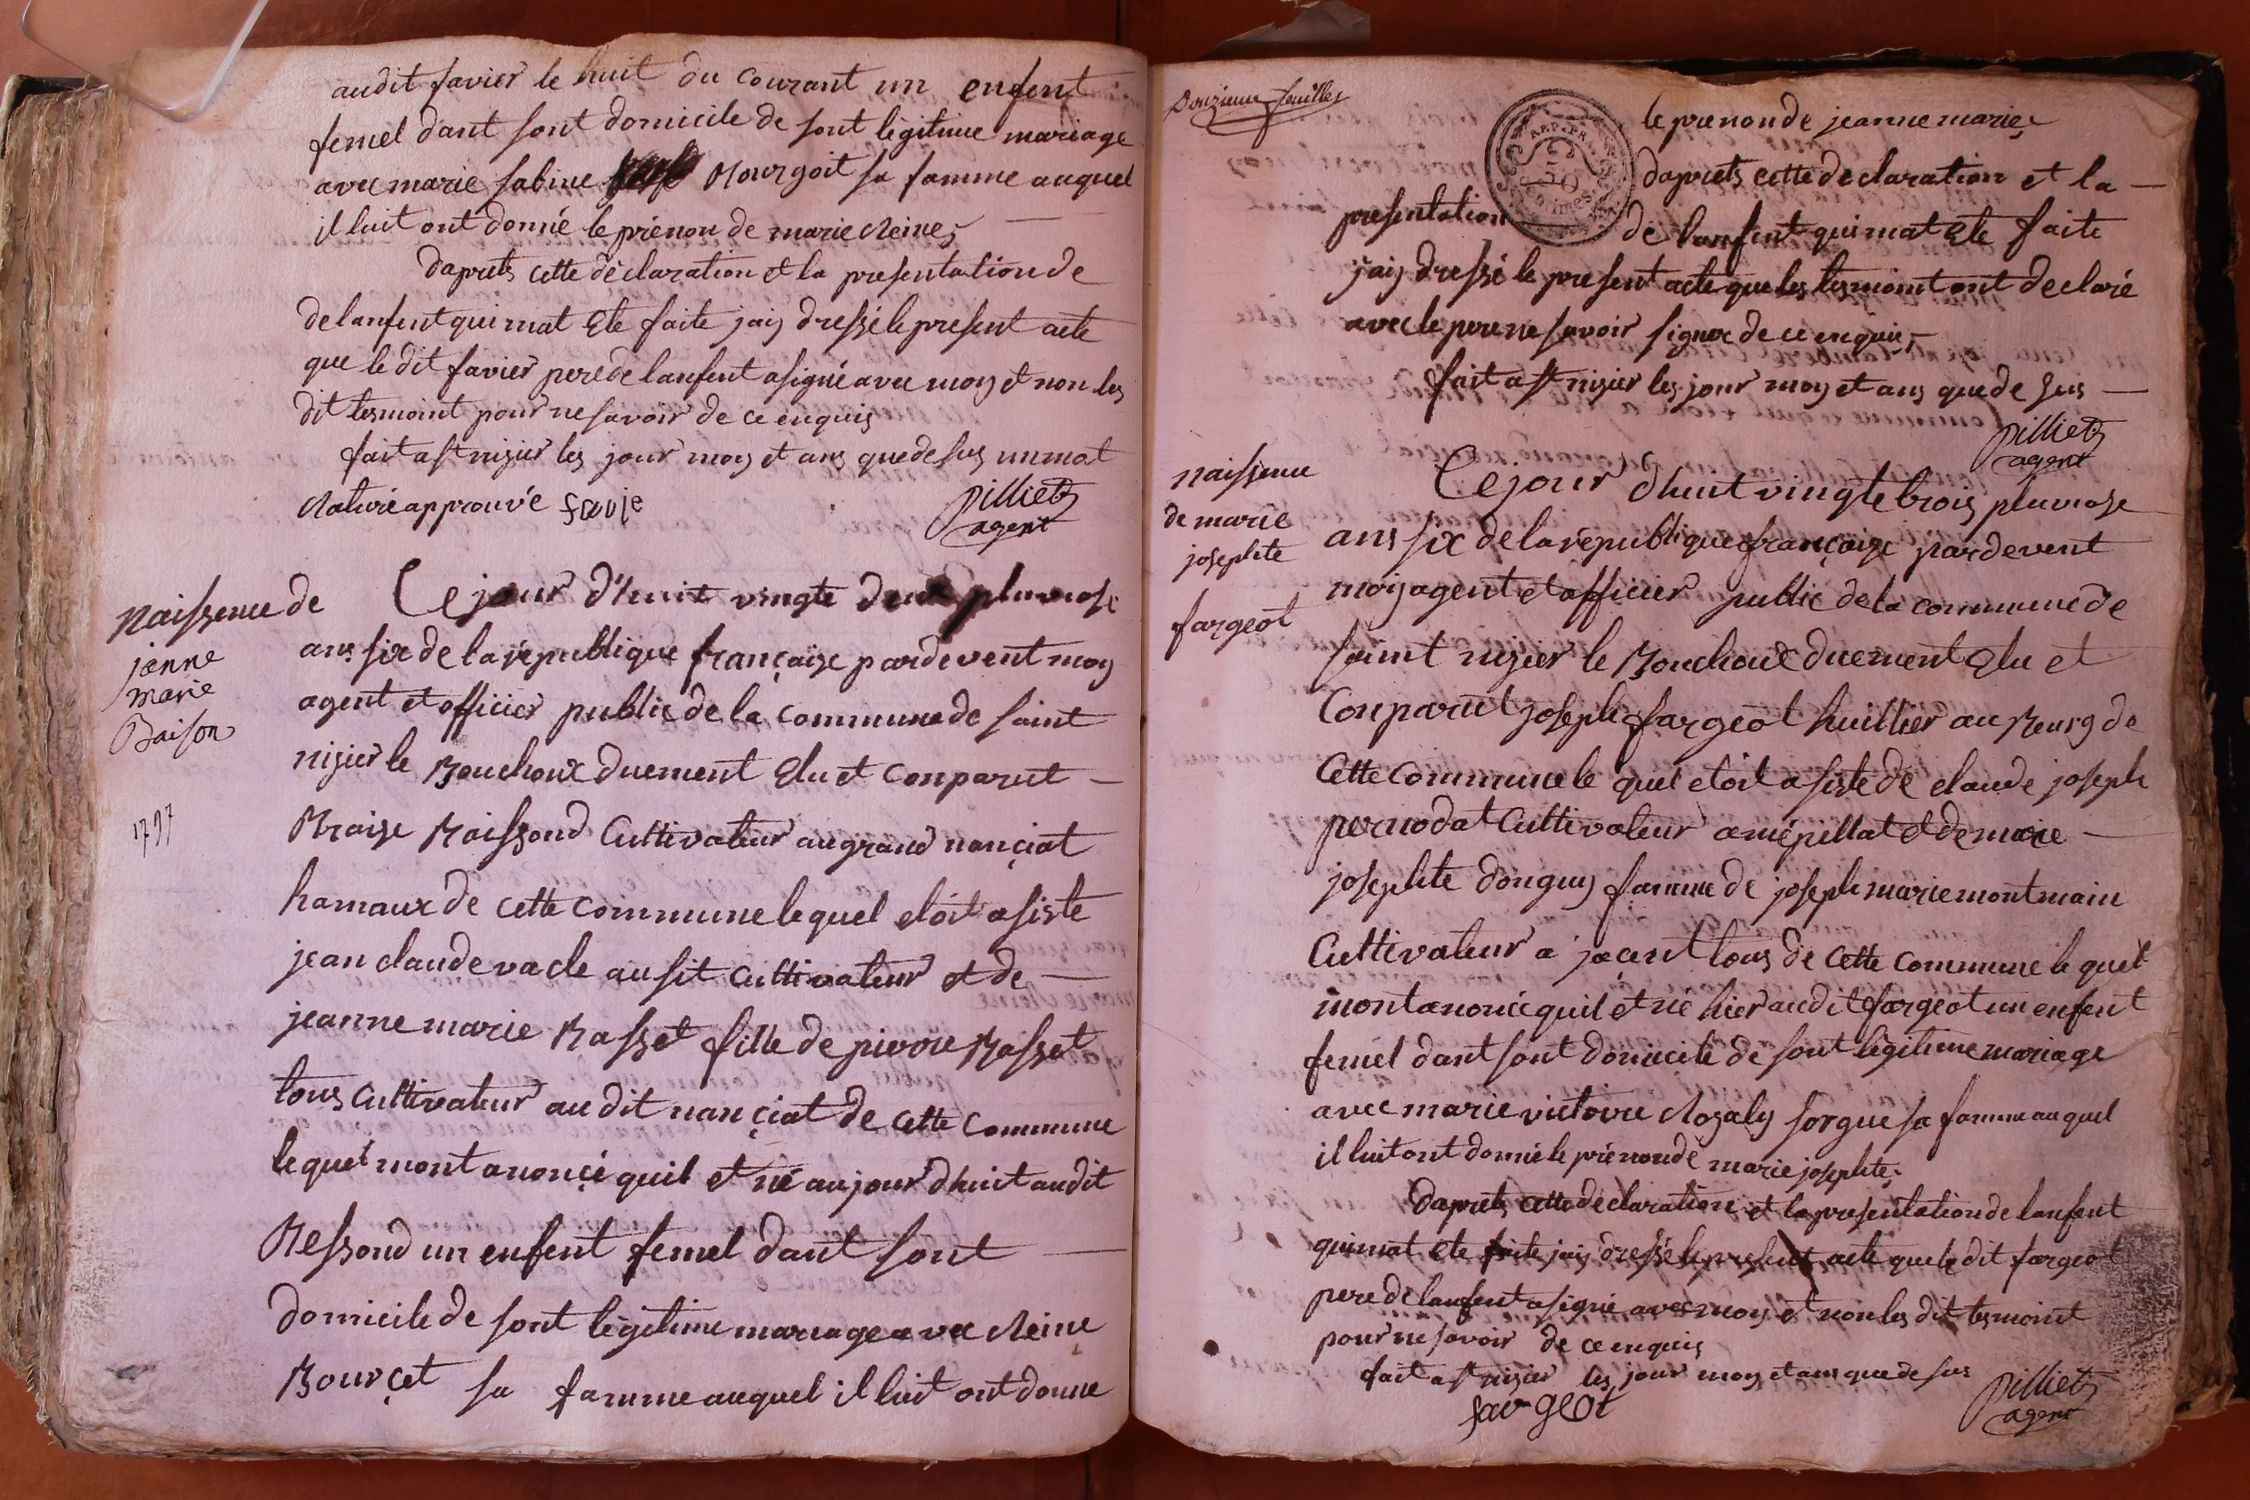 audit favier le huit du courant un enfent
femel dant sont domicile de sont légitime mariage
avec marie sabine Bourgoit sa famme auquel
il luit ont donné le prénon de marie Reine
daprets cette déclaration et la presentation de
de lanfent qui mat ete faite jaiy dressé le present acte
que le dit favier pere de lanfent a signé avec moy et non les
dit tesmoint pour ne savoir de ce enquis
fait a st nizier les jour moy et ans que de sus un mot
Raturé approuvé favie
pilliet
agent
Naissence de
janne
marie
Baison
1797
Ce jour d'huit vingte deux pluviose
ans six de la république françaize pardevent moy
agent et officier public de la commune de saint
nizier le Bouchoux duement Elu et conparut
Blaize Baissond Cultivateur au grand nançiat
hamaux de cette commune le quel etoit asiste
jean claude vacle ausit cultivateur et de
jeanne marie Basset fille de pierre Basset
tous cultivateur au dit nançiat de cette commune
le quel mont anonçé quil et né aujour dhuit audit
Bessond un enfent femel dant sont
domicile de sont légitime mariage avec Reine
Bourçet sa famme auquel il luit ont donné
Douzieme feuillet
le prenon de jeanne marie
daprets cette declaration et la
presentation de lanfent qui mat ete faite
jaiy dressé le present acte que les tesmoint ont declaré
avec le pere ne savoir signer de ce enquis
fait a st nizier les jour moy et ans que de sus
pilliet
agent
naissence
de marie
josephte
fargeot
Ce jour d'huit vingte trois pluviose
ans six de la république françaize pardevent
moy agent et officier public de la commune de
saint nizier le Bouchoux duement Elu et
Conparut joseph fargeot huillier au Bourg de
Cette commune le quel etoit asiste de claude joseph
pernodat Cultivateur a mépillat et de marie
josephte donguy famme de joseph marie montmain
Cultivateur a jacent tous de cette commune le quel
mont anoncé quil et né hier audit fargeot un enfent
femel dant sont domicile de sont légitime mariage
avec marie victoire Rozaly sorgue sa famme au quel
il luit ont donné le prénon de marie josephte
daprets cette declaration et la presentation de lanfent
qui mat ete faite jaiy dressé le present acte que le dit fargeot
pere de lanfent a signé avec moy et non les dit tesmoint
pour ne savoir de ce enquis
fait a st nizier les jour moy et ans que de sus
fargeot
pilliet
agent